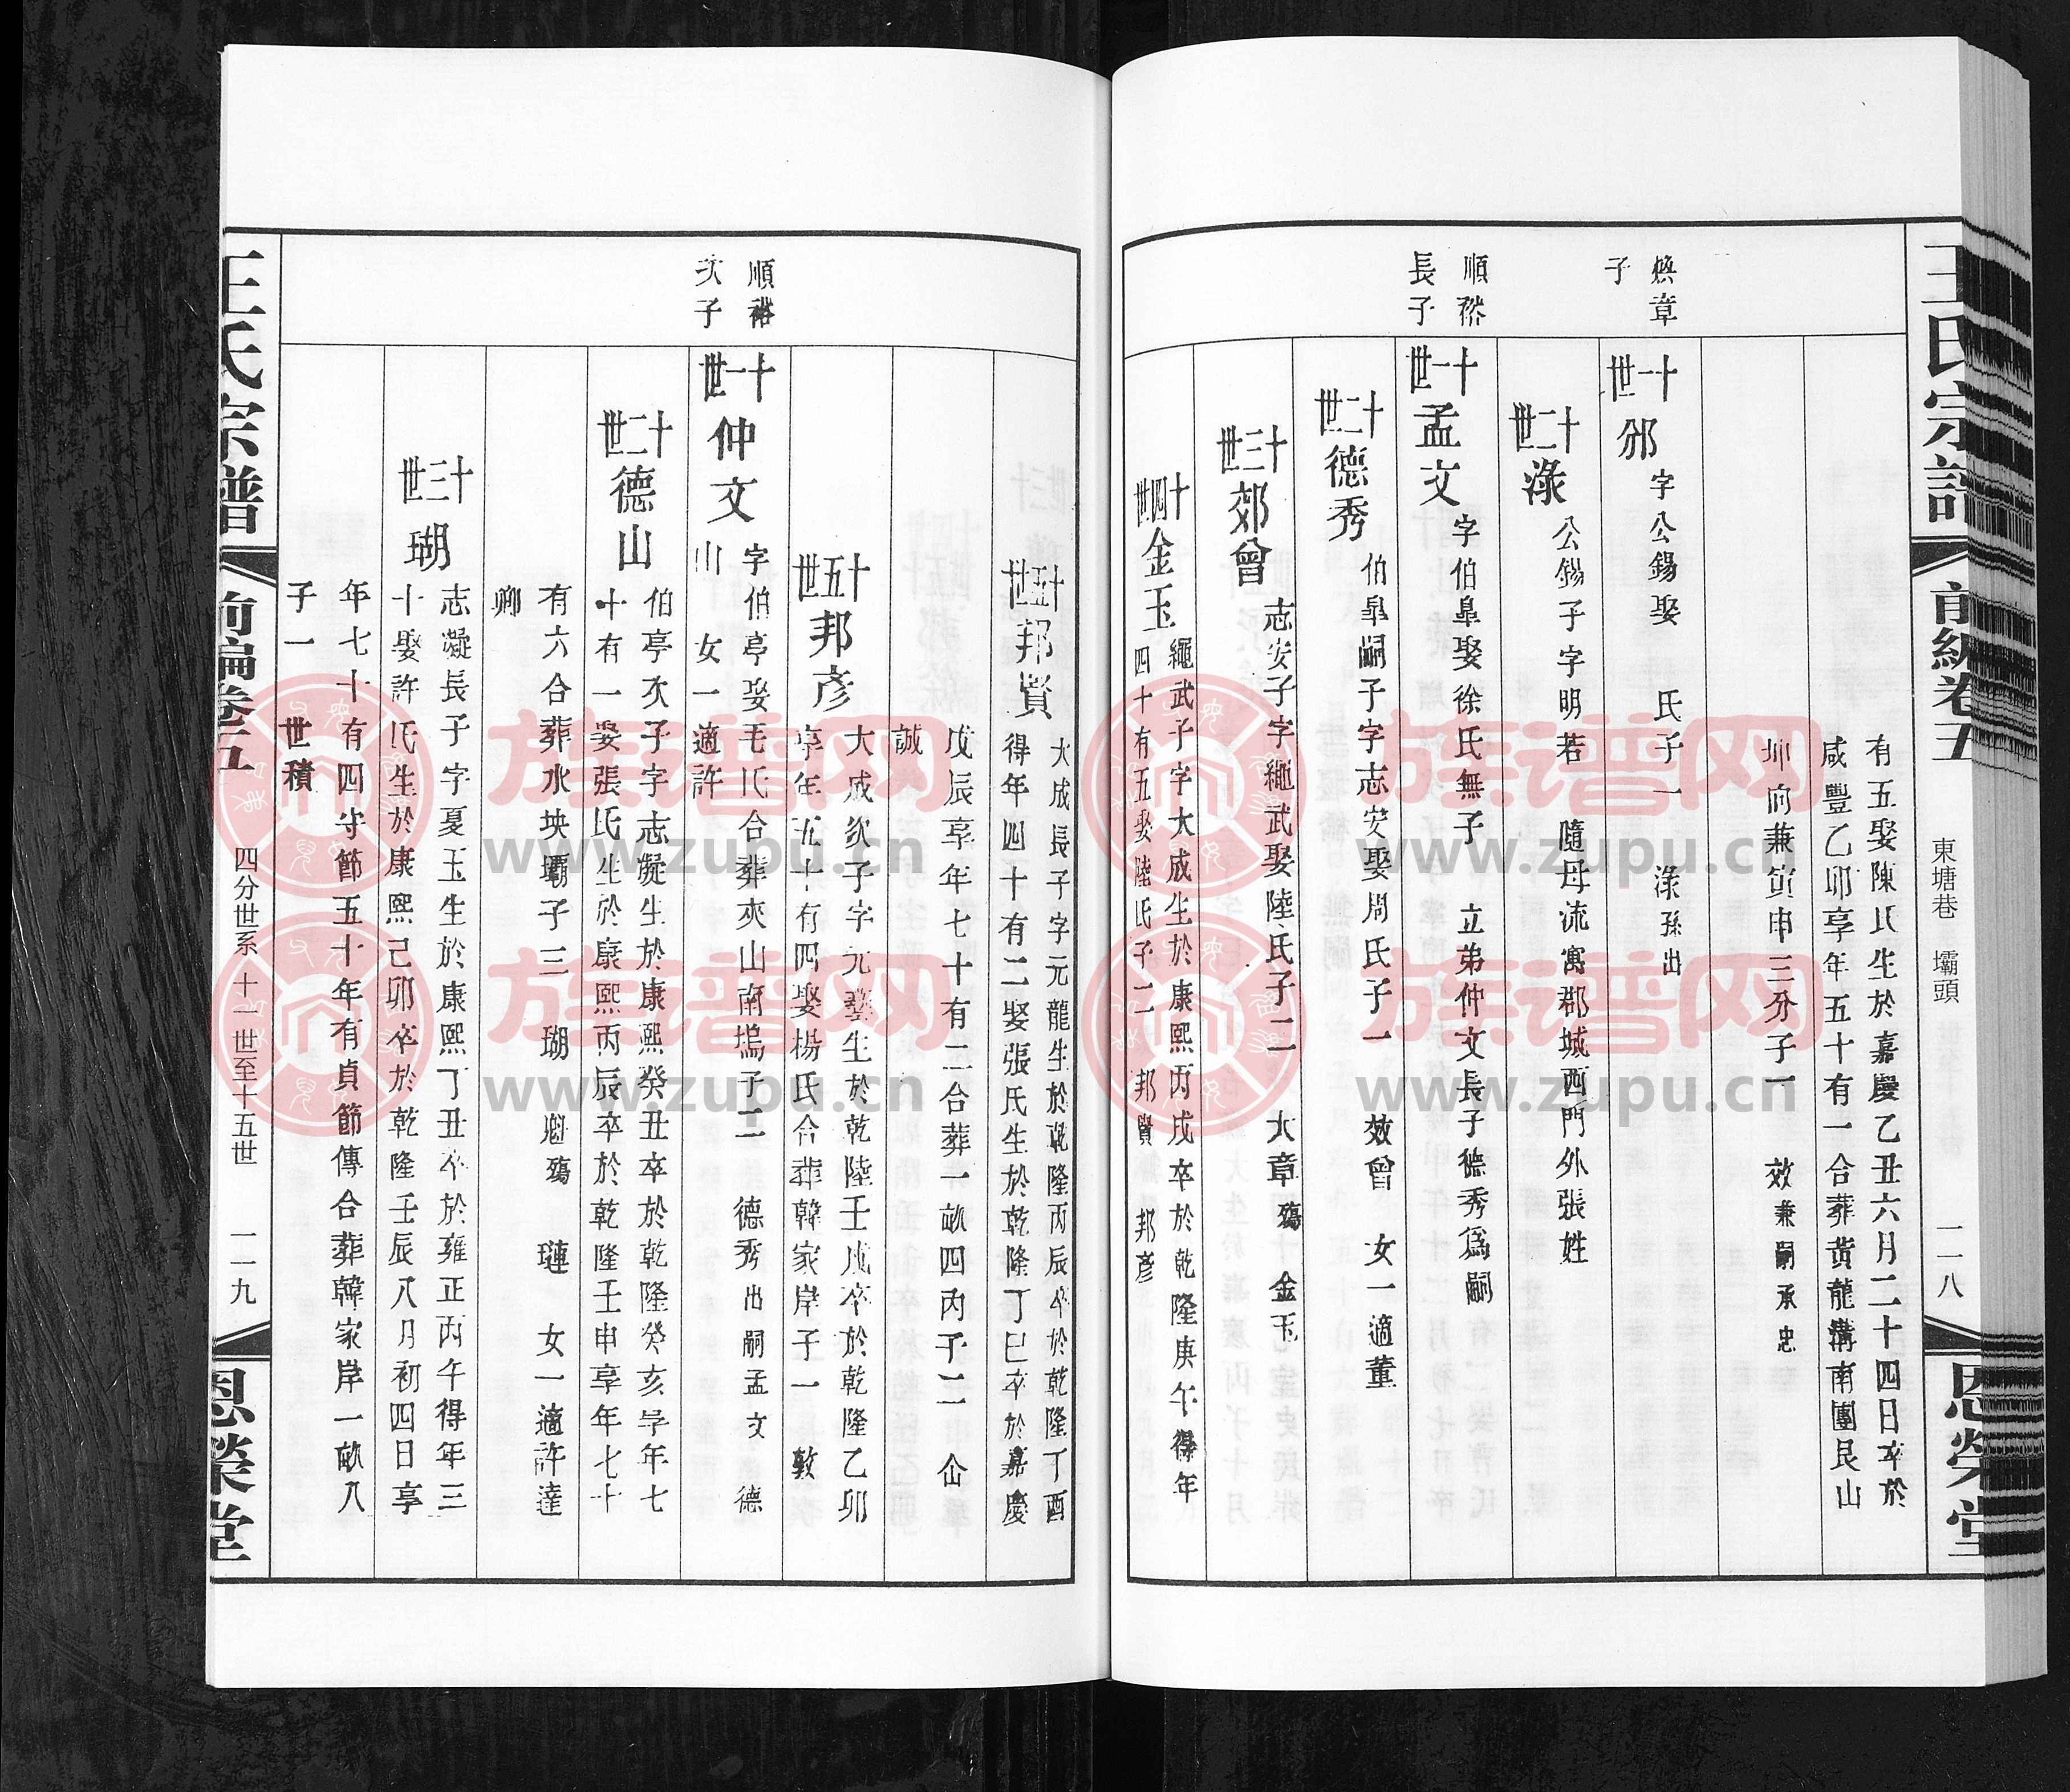 王氏宗譜
前編卷五
東塘巷 壩頭
一一八
恩榮堂
有五娶陳氏生於嘉慶乙丑六月二十四日卒於
咸豐乙卯享年五十有一合葬黃龍溝南團艮山
坤向兼寅申三分子一 效兼嗣承忠
煥章
子
十一世
邠 字公錫娶 氏子一 淥孫出
十二世
淥 公錫子字明若 隨母流寓郡城西門外張姓
順裕
長子
十一世
孟文 字伯臯娶徐氏無子 立弟仲文長子德秀為嗣
十二世
德秀 伯臯嗣子字志安娶周氏子一 效曾 女一適董
十三世
郊曾 志安子字繩武娶陸氏子二 大章殤 金玉
十四世
金玉 繩武子字大成生於康熙丙戌卒於乾隆庚午得年
四十有五娶陸氏子二 邦賢 邦彥
十五世
邦賢 大成長子字元龍生於乾隆丙辰卒於乾隆丁酉
得年四十有二娶張氏生於乾隆丁巳卒於嘉慶
戊辰享年七十有二合葬一畝四丙子二 仚
誠
十五世
邦彥 大成次子字元 生於乾隆壬戌卒於乾隆乙卯
享年五十有四娶楊氏合葬韓家岸子一 敦
順裕
次子
十一世
仲文 字伯亭娶毛氏合葬夾山南塢子二 德秀出嗣孟文 德
山 女一適許
十二世
德山 伯亭次子字志凝生於康熙癸丑卒於乾隆癸亥享年七
十有一娶張氏生於康熙丙辰卒於乾隆壬申享年七十
有六合葬水坱壩子三 瑚 殤 璉 女一適許達
卿
十三世
瑚 志凝長子字夏玉生於康熙丁丑卒於雍正丙午得年三
十娶許氏生於康熙己卯卒於乾隆壬辰八月初四日享
年七十有四守節五十年有貞節傳合葬韓家岸一畝八
子一 世積
王氏宗譜
前編卷五
四分世系 十一世至十五世
一一九
恩榮堂
族谱网
www.zupu.cn
族谱网
www.zupu.cn
族谱网
www.zupu.cn
族谱网
www.zupu.cn